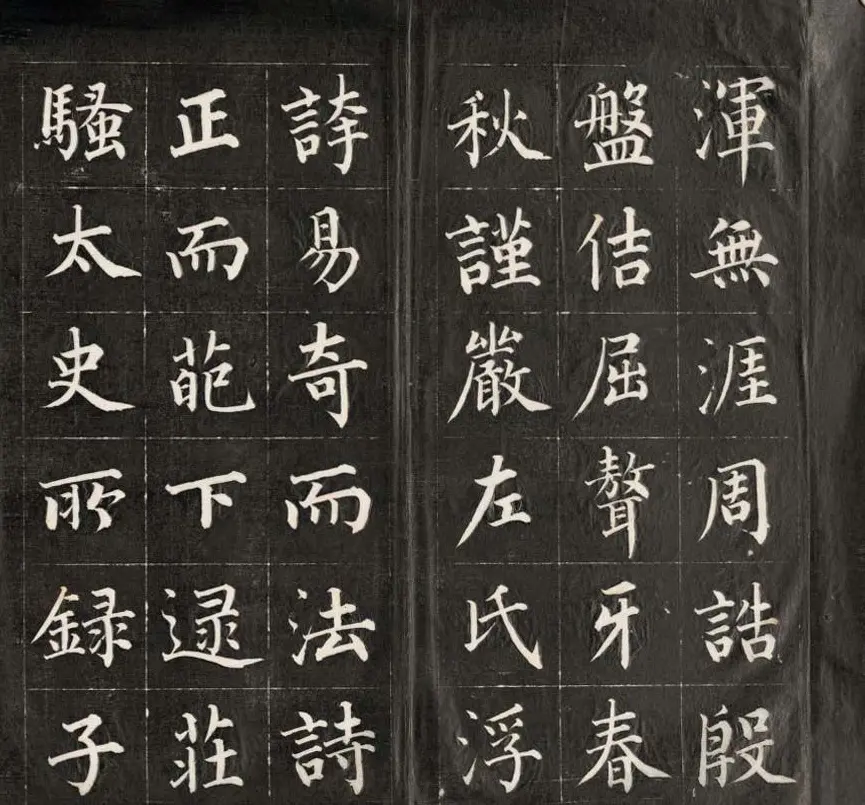 渾無涯周誥殷
盤佶屈聱牙春
秋謹嚴左氏浮
誇易奇而法詩
正而葩下逯莊
騷太史所録子